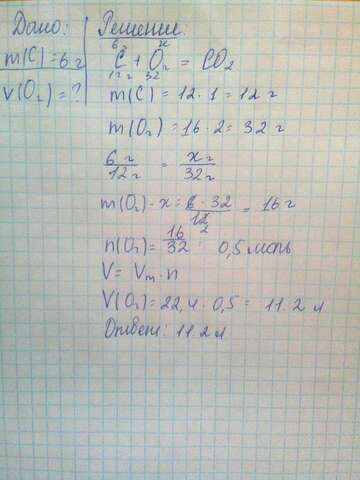 Дано:
m(C)=6 г
V(O₂)=?
Решение:
6 г x
C + O₂ = CO₂
12 г 32 г
m(C) = 12 · 1 = 12 г
m(O₂) = 16 · 2 = 32 г
6 г / 12 г = x г / 32 г
m(O₂) - x = 6 · 32 / 12 = 16 г
2
n(O₂) = 16 / 32 = 0,5 моль
V = Vm · n
V(O₂) = 22,4 · 0,5 = 11.2 л
Ответ: 11.2 л